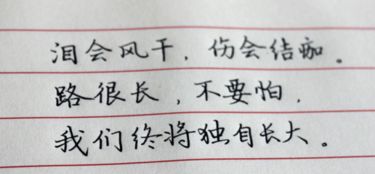 泪会风干，伤会结痂。
路很长，不要怕，
我们终将独自长大。